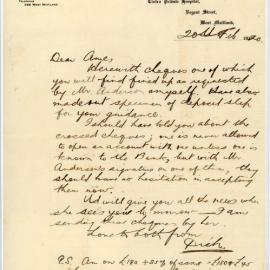 Private Hospital,
Regent Street,
West Maitland,
20th Feb 1920.
Dear Amy,
Herewith cheques one of which
you will find fixed up as requested
by Mr. Anderson & myself. Have also
made out specimen of deposit slip
for your guidance.
I should have told you about the
crossed cheques; one is never allowed
to open an account with one unless one is
known to the Bank, but with Mr
Anderson's signature on one of them, they
should have no hesitation in accepting
them now.
Ud will give you all the news when
she sees you to-morrow — I am
sending these cheques by her.
Love to both from
Dick.
P.S. Am